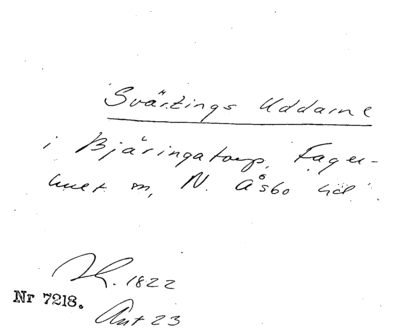 Svärtings Uddarne
i Bjäringatorp, Fager-
hult sn, N. Åsbo hd
Th. 1822
Nr 7218.
Ant 23